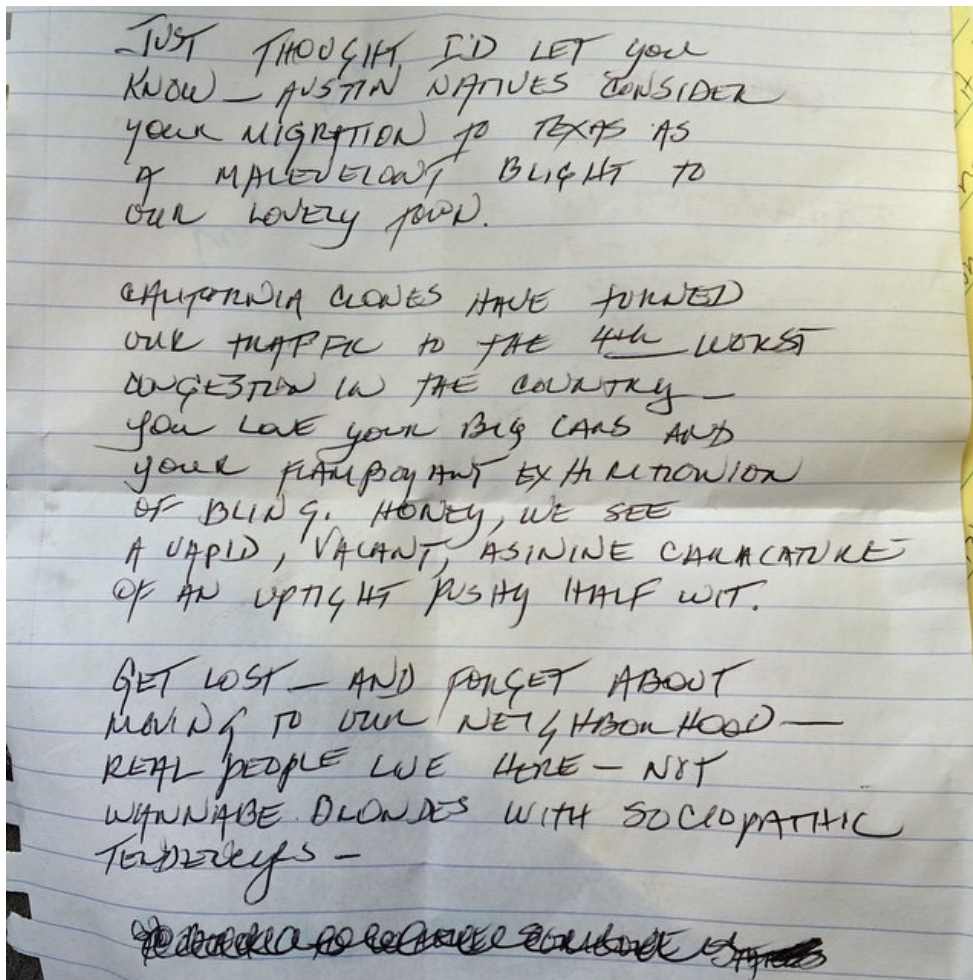 JUST THOUGHT I'D LET you
KNOW — AUSTIN NATIVES CONSIDER
your MIGRATION to TEXAS AS
A MALEVELONT BLIGHT TO
OUR LOVELY TOWN.
CALIFORNIA CLONES HAVE TURNED
OUR TRAFFIC to THE 4th WORST
CONGESTION IN THE COUNTRY —
you LOVE your BIG CARS AND
your FLAMBOYANT
OF BLING. HONEY, WE SEE
A VAPID, VACANT, ASININE CARACATURE
OF AN UPTIGHT PUSHY HALF WIT.
GET LOST — AND FORGET ABOUT
MOVING TO OUR NEIGHBORHOOD —
REAL PEOPLE LIVE HERE — NOT
WANNABE BLONDES WITH SOCIOPATHIC